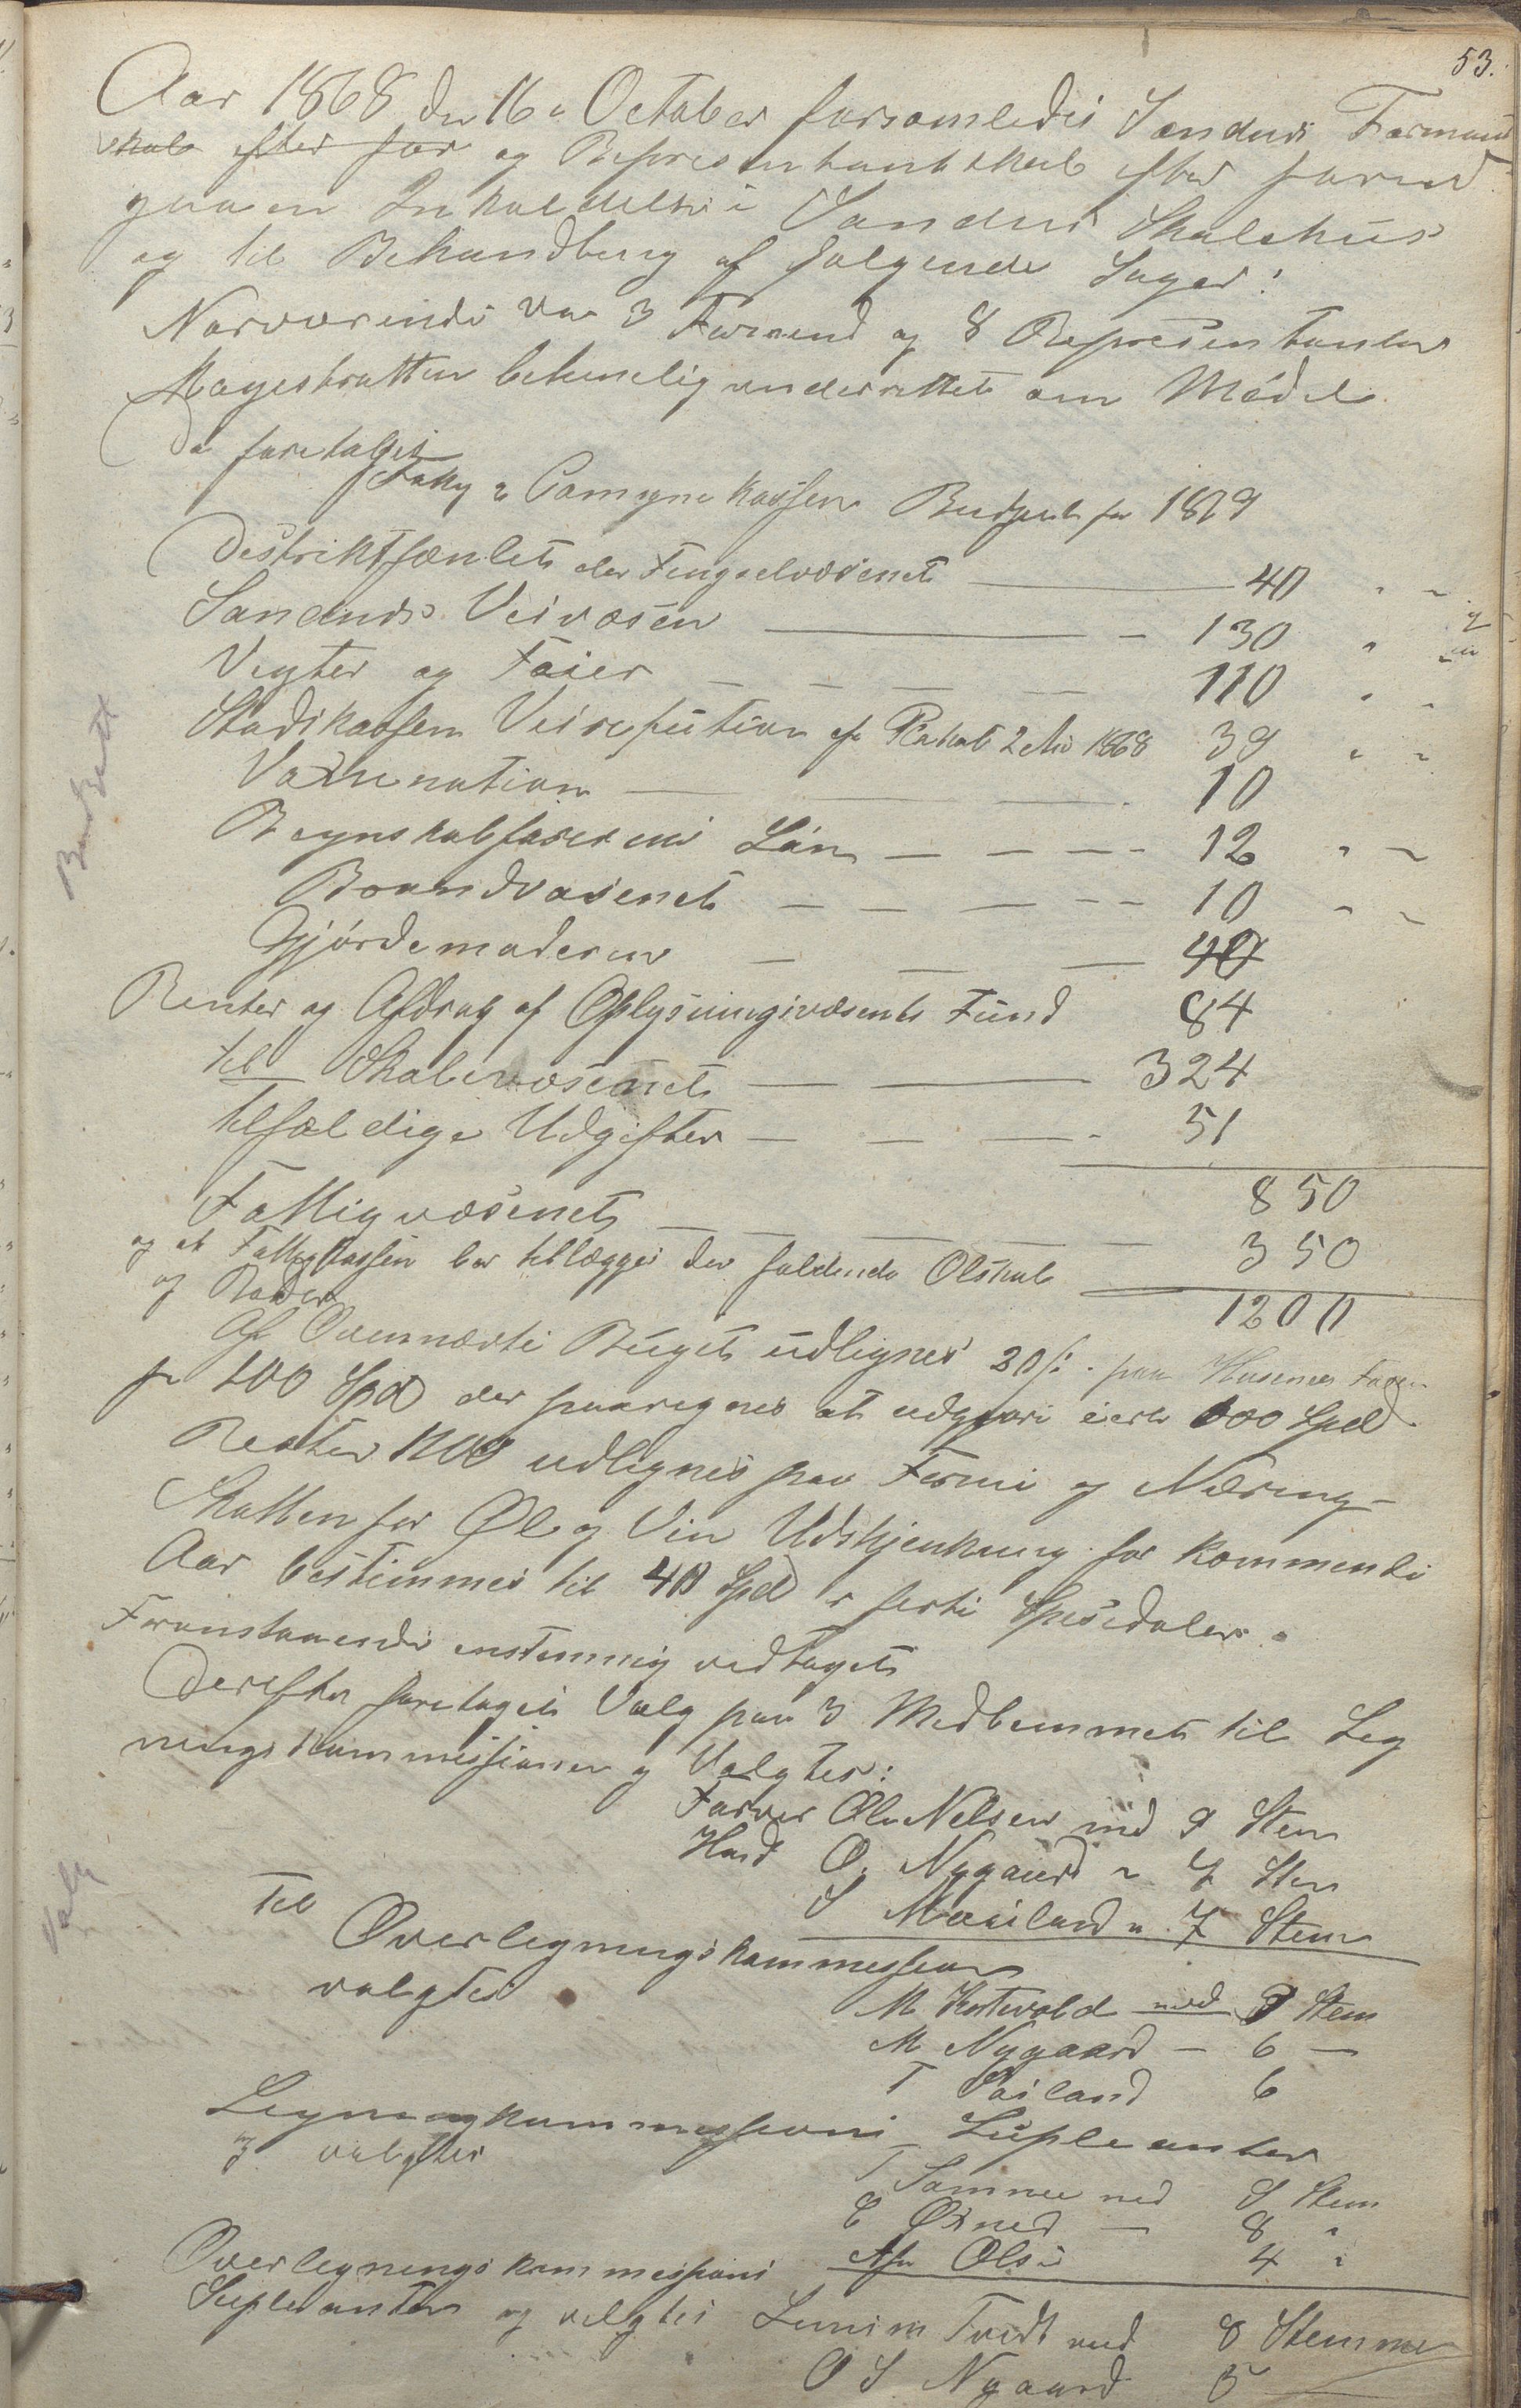 53.
Aar 1868 den 16 October forsamledes Sandnes Formand
skab efter for og Represintantskab efter forud
gaaen Inkaldelse i Sandnes Skolehus
og til Behandleng af følgende Sager:
Nærværende var 3 Formend og 8 Represen tanter
Magestratten behørelig underettet om Mødet.
Da foretages
Comyne kassen Budget for 1869
Destriktfænlets der Fengselvæsenet 40 " "
Sandnes Veivæsen 130 "
Vegter og Faier 110 "
Stadskassen Veirefution ef Plakat 2 1868 39 " "
Vaxenation 10
Regnskabførerens Løn 12 " "
Brandvæsenet 10 " "
Gjørdemoderen 40
Renter og Afdrag af Oplysningsvæsenets Fund 84
til Skolevæsenet 324
tilfældige Udgifter 51
850
Fattigvæsenet 350
og at Fattigkassen bør tillægges den faldende Ølskat
og Bøder
1200
Af Ovennævte Buget udlignes 20 ß. paa Husenes Taxt
pr 100 Spd der paaregnes at udgjøre circa 100 Spd
Resten 1100 udlignes paa Formue og Næring-
Skatten for Øl og Vin Udskjenkning for kommende
Aar bestemmes til 40 Spd " førti Spesidaler "
Foranstaaende enstemmig vedtaget
Derefter foretages Valg paa 3 Medlemmet til Leg
nings kommissionen og Valgtes:
Farver Ole Nelsen med 9 Stem
Hand O. Nygaard " 7 Stem
S Mæiland " 7 Stem
Til
Overlegnings kommession
valgtes
M Hortvold med 9 Stem
M Nygaard - 6 -
T Soiland 6
Legningkommessions Supleanter
og valgtes
T Somme med 8 Stem
E Øxned - 8 "
Asm Olsen 4 "
Overlegnings kommessions
Supleanter og valgtes Lauri m Tvedt med 8 Stemmer
O S Nygaard 5
Budgett
Valg